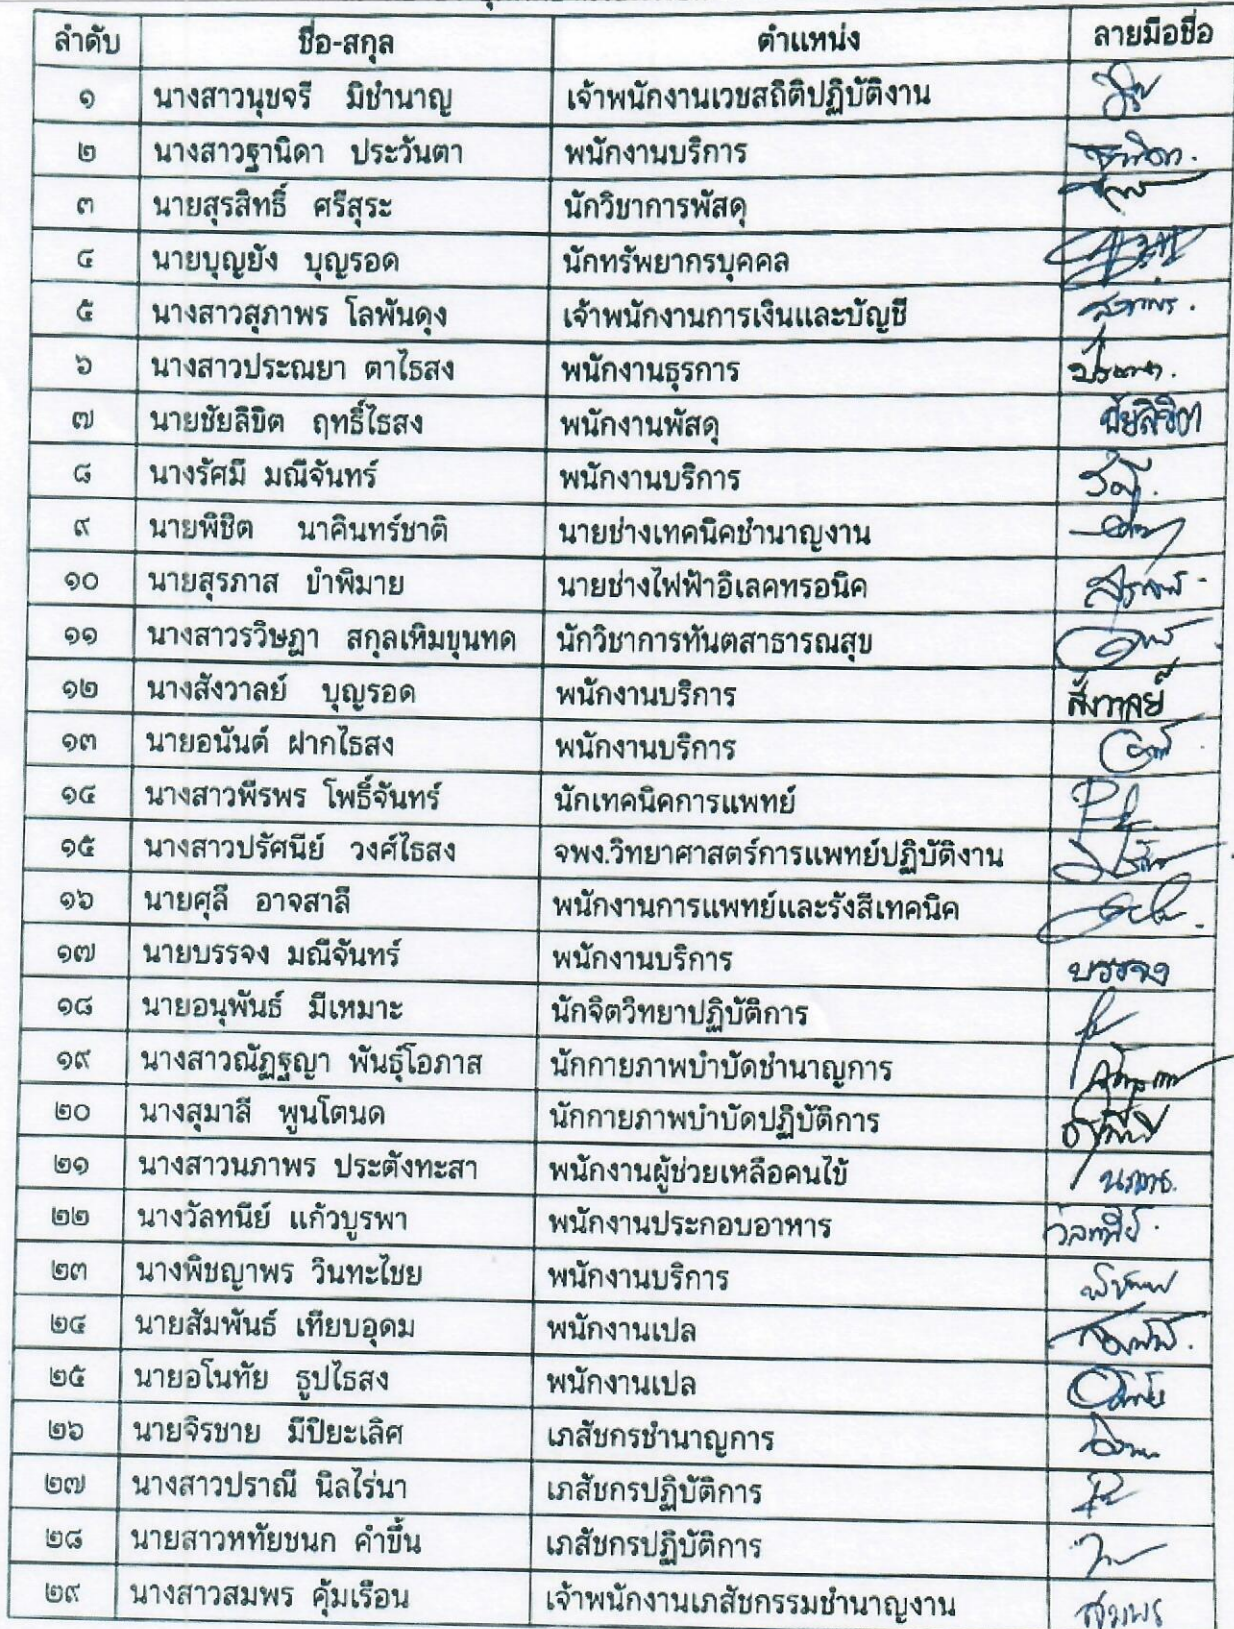 ลำดับ ชื่อ-สกุล ตำแหน่ง ลายมือชื่อ
๑ นางสาวนุชจรี มิชำนาญ เจ้าพนักงานเวชสถิติปฏิบัติงาน
๒ นางสาวฐานิดา ประวันตา พนักงานบริการ
๓ นายสุรสิทธิ์ ศรีสุระ นักวิชาการพัสดุ
๔ นายบุญยัง บุญรอด นักทรัพยากรบุคคล
๕ นางสาวสุภาพร โลพันดุง เจ้าพนักงานการเงินและบัญชี สุภาพร.
๖ นางสาวประณยา ตาไธสง พนักงานธุรการ
๗ นายชัยลิขิต ฤทธิ์ไธสง พนักงานพัสดุ ชัยลิขิต
๘ นางรัศมี มณีจันทร์ พนักงานบริการ
๙ นายพิชิต นาคินทร์ชาติ นายช่างเทคนิคชำนาญงาน
๑๐ นายสุรภาส ขำพิมาย นายช่างไฟฟ้าอิเลคทรอนิค
๑๑ นางสาวรวิษฎา สกุลเหิมขุนทด นักวิชาการทันตสาธารณสุข
๑๒ นางสังวาลย์ บุญรอด พนักงานบริการ สังวาลย์
๑๓ นายอนันต์ ฝากไธสง พนักงานบริการ
๑๔ นางสาวพีรพร โพธิ์จันทร์ นักเทคนิคการแพทย์
๑๕ นางสาวปรัศนีย์ วงศ์ไธสง จพง.วิทยาศาสตร์การแพทย์ปฏิบัติงาน
๑๖ นายศุลี อาจสาลี พนักงานการแพทย์และรังสีเทคนิค
๑๗ นายบรรจง มณีจันทร์ พนักงานบริการ บรรจง
๑๘ นายอนุพันธ์ มีเหมาะ นักจิตวิทยาปฏิบัติการ
๑๙ นางสาวณัฏฐญา พันธุ์โอภาส นักกายภาพบำบัดชำนาญการ
๒๐ นางสุมาลี พูนโตนด นักกายภาพบำบัดปฏิบัติการ
๒๑ นางสาวนภาพร ประตังทะสา พนักงานผู้ช่วยเหลือคนไข้ นภาพร.
๒๒ นางวัลทนีย์ แก้วบูรพา พนักงานประกอบอาหาร วัลทนีย์.
๒๓ นางพิชญาพร วินทะไชย พนักงานบริการ
๒๔ นายสัมพันธ์ เทียบอุดม พนักงานเปล
๒๕ นายอโนทัย ธูปไธสง พนักงานเปล
๒๖ นายจิรชาย มีปิยะเลิศ เภสัชกรชำนาญการ
๒๗ นางสาวปราณี นิลไร่นา เภสัชกรปฏิบัติการ
๒๘ นายสาวหทัยชนก คำขึ้น เภสัชกรปฏิบัติการ
๒๙ นางสาวสมพร คุ้มเรือน เจ้าพนักงานเภสัชกรรมชำนาญงาน สมพร